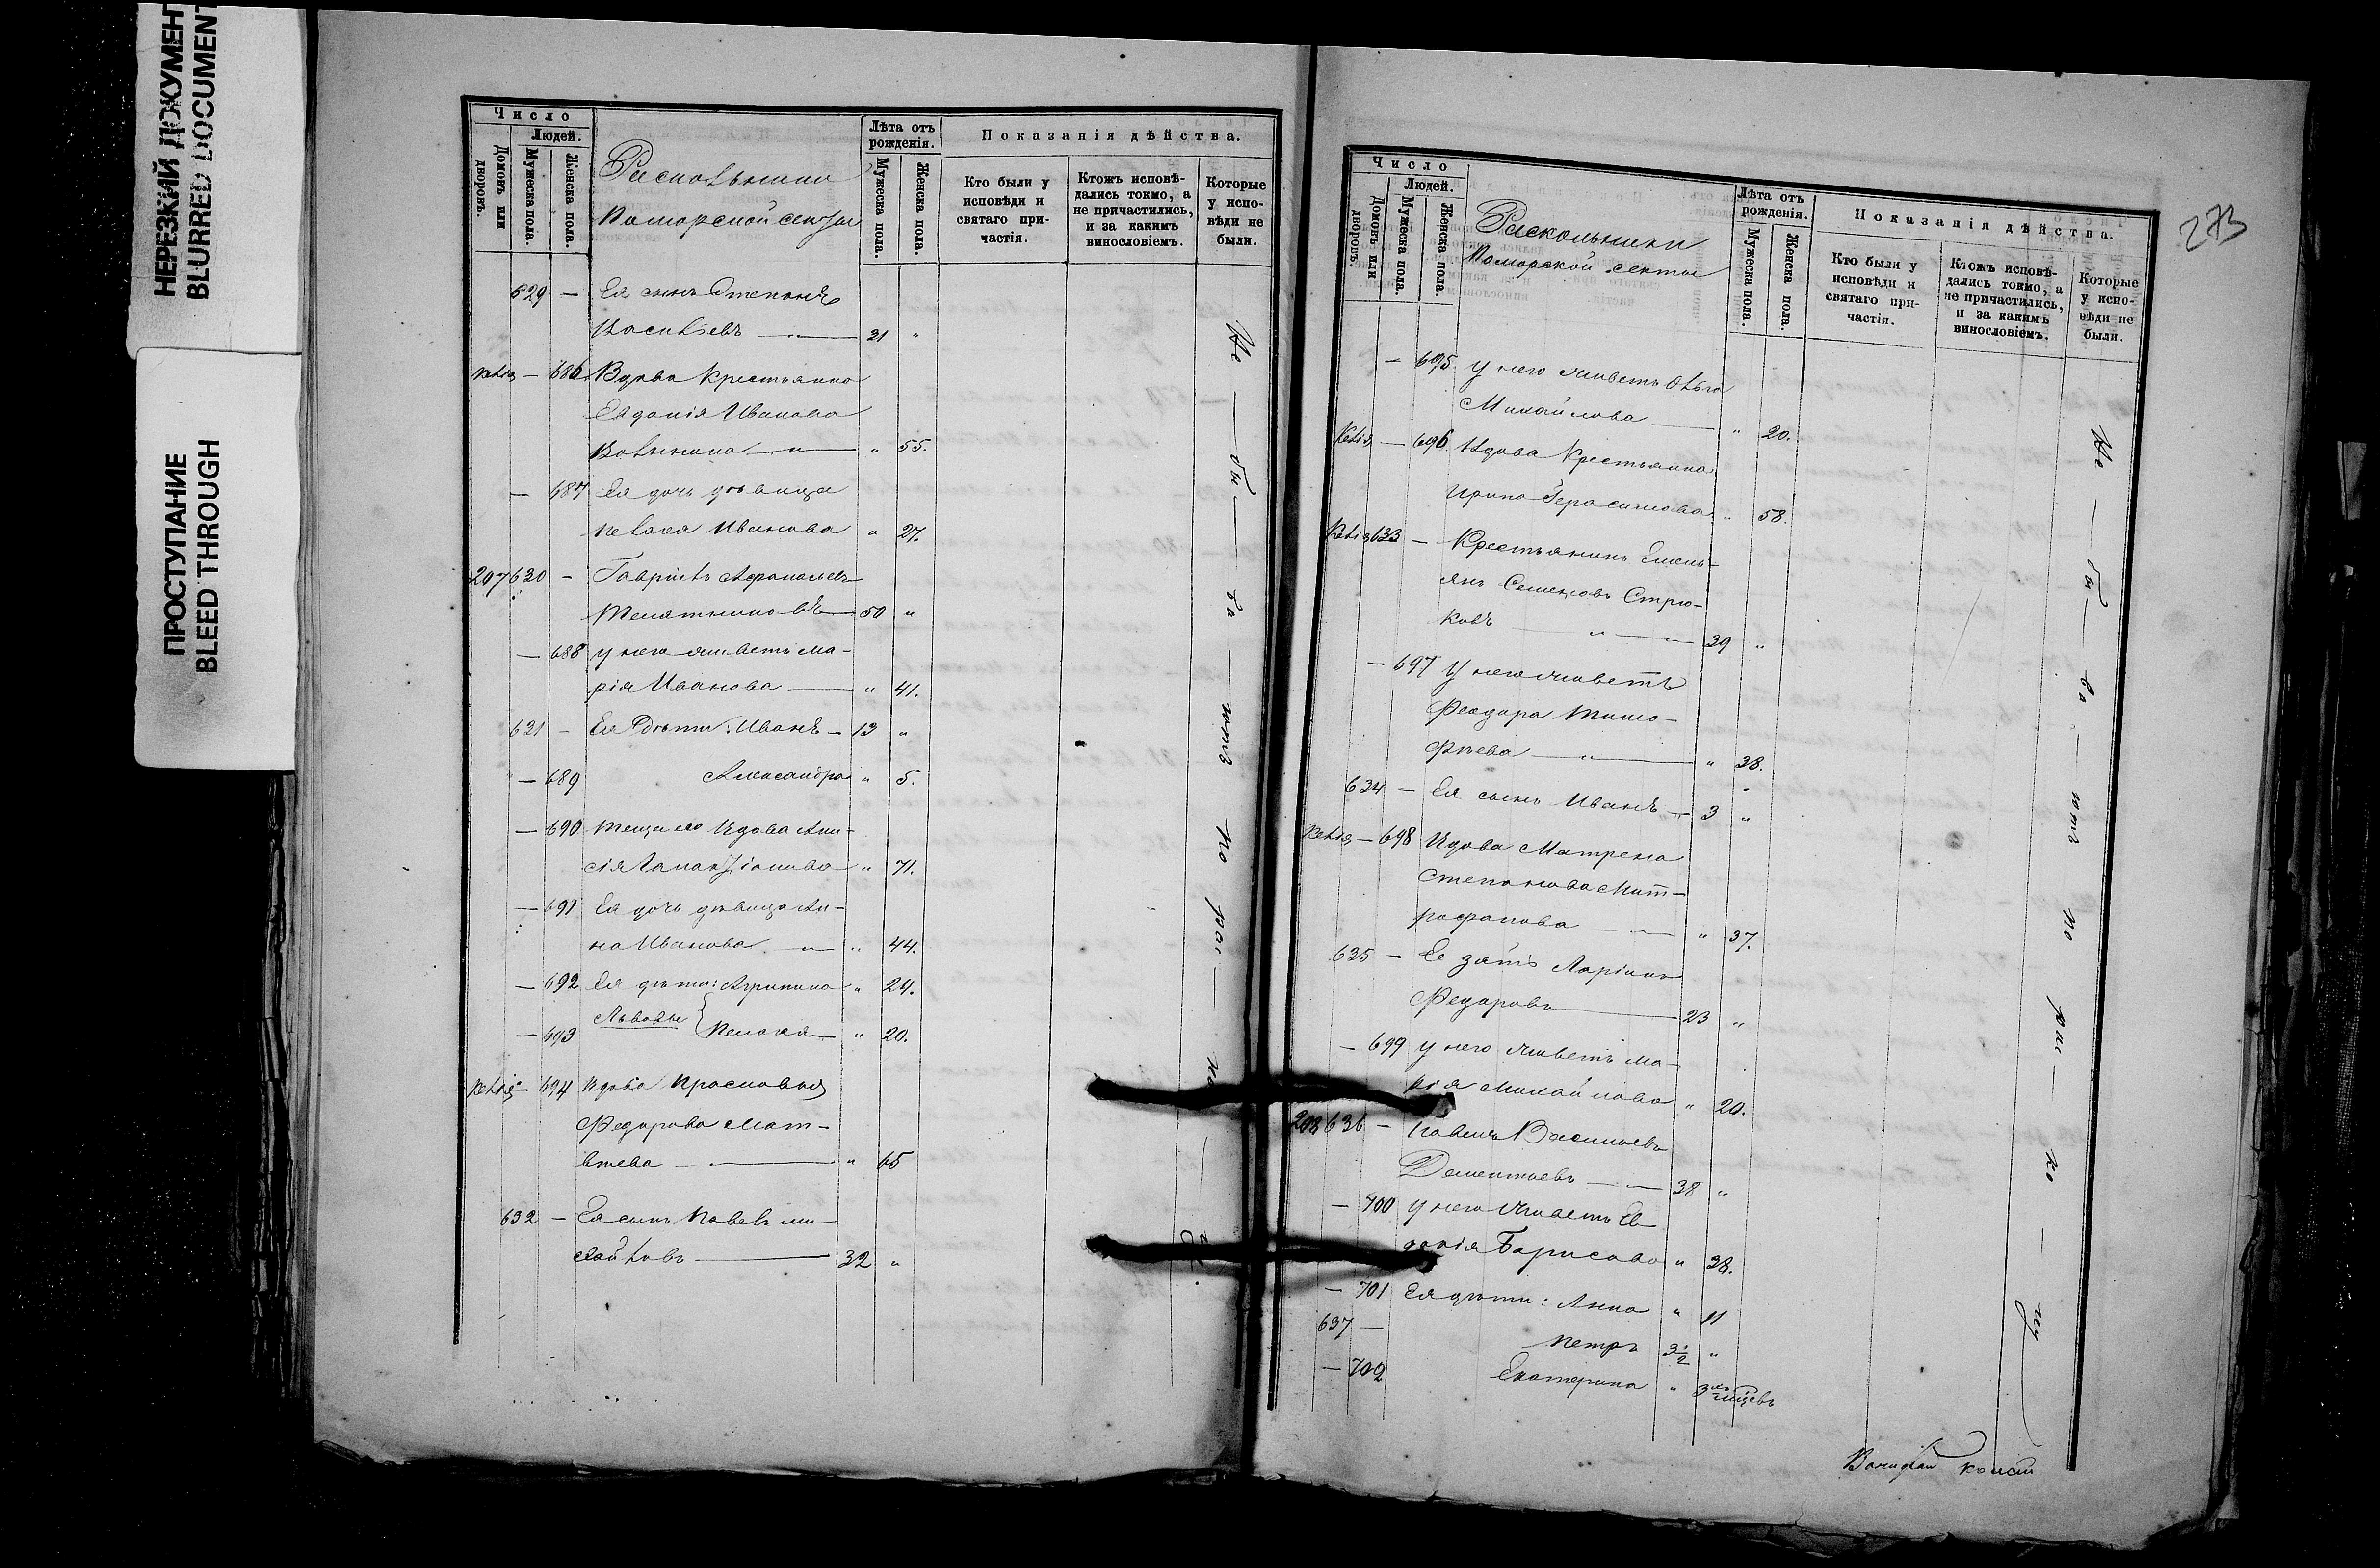 НЕРЕЗКИЙ ДОКУМЕНТ
BLURRED DOCUMENT
ПРОСТУПАНИЕ
BLEED THROUGH
Число
Людей.
Домовъ или дворовъ.
Мужеска пола.
Женска пола.
Раскольники
Поморской секты
Лѣта отъ рожденія.
Мужеска пола.
Женска пола.
Показанія дѣйства.
Кто были у исповѣди и святаго причастія.
Ктожъ исповѣдались токмо, а не причастились, и за какимъ винословіемъ.
Которые у исповѣди не были.
629 — Ея сынъ Степанъ
Васильевъ — 21 "
Келія — 686 Вдова крестьянка
Евдокія Иванова
" 55.
— 687 Ея дочь дѣвица
Пелагея Иванова " 27.
207 630 — Гавріилъ Афанасьевъ
Телятниковъ — 50 "
— 688 у него живетъ Ма-
рія Иванова — " 41.
631 — Ея дѣти: Иванъ — 13 "
— 689 Александра " 5.
— 690 теща его вдова Ани-
сія " 71.
— 691 Ея дочь дѣвица Ан-
на Иванова — " 44.
— 692 Ея дѣти: Агрипина " 24.
— 693 Львовы } Пелагея — " 20.
Келія — 694 Вдова Прасковья
Федорова Мат-
вѣева — " 65
632 — Ея сынъ Павелъ Ми-
хайловъ — 32 "
Не — бы — ва — ютъ по рас — ко —
273
Число
Людей.
Домовъ или дворовъ.
Мужеска пола.
Женска пола.
Раскольники
Поморской секты
Лѣта отъ рожденія.
Мужеска пола.
Женска пола.
Показанія дѣйства.
Кто были у исповѣди и святаго причастія.
Ктожъ исповѣдались токмо, а не причастились, и за какимъ винословіемъ.
Которые у исповѣди не были.
— 695 У него живетъ Ольга
Михайлова — " 20.
Келія — 696 Вдова Крестьянка
Ирина Герасимова " 58.
Келія 633 — Крестьянинъ Емель-
янъ Семеновъ Стрю-
ковъ — " — 39 "
— 697 У него живетъ
Феодора Тимо-
фѣева — " 38.
634 — Ея сынъ Иванъ — 3 "
Келія — 698 Вдова Матрена
Степанова Мит-
рофанова — " 37.
635 — Ее зять Ларіонъ
Федоровъ — 23 "
— 699 у него живетъ Ма-
рія Михайлова " 20.
208 636 — Павелъ Васильевъ
Дементьевъ — 38 "
— 700 у него живетъ Ев-
докія Борисова " 38.
— 701 Ея дѣти: Анна " 11
637 — Петръ 3½ "
— 702 Екатерина " 3
Не — бы — ва — ютъ по рас — ко — лу